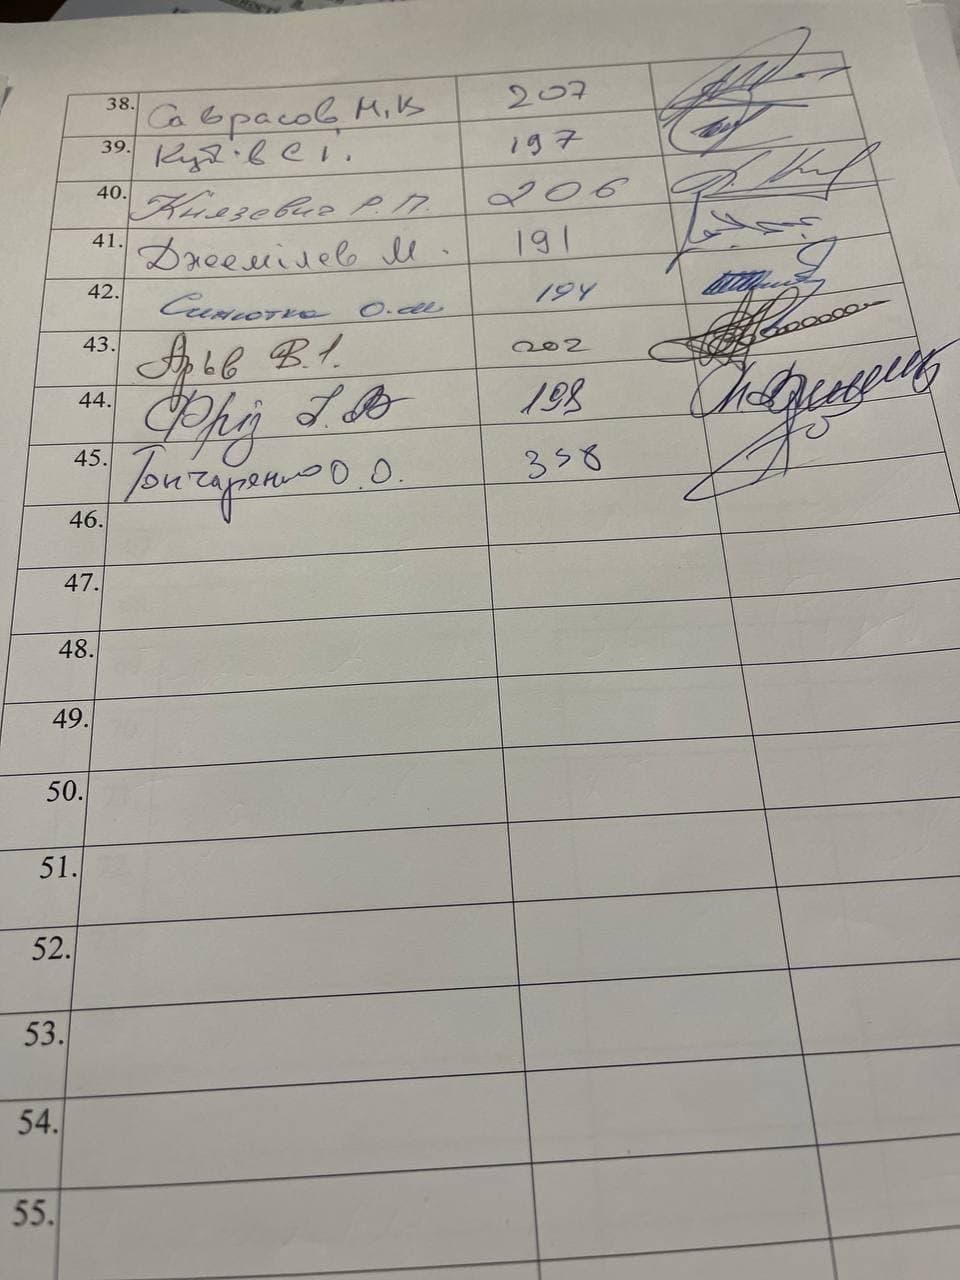 38. Саврасов М, В 207
39. 197
40. Князевич Р. П. 206
41. Джемілєв М. 191
42. Синютка О. М 194
43. Ар'єв В. І. 202
44. Фріз І. В 198
45. Гончаренко О. О. 358
46.
47.
48.
49.
50.
51.
52.
53.
54.
55.